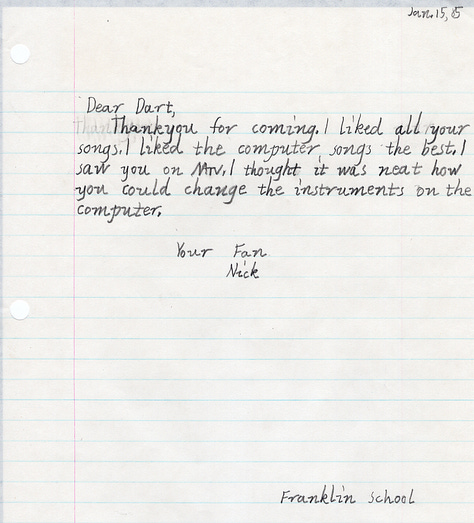 Jan. 15, 85
Dear Dart,
Thankyou for coming. I liked all your
songs. I liked the computer songs the best. I
saw you on Mtv. I thought it was neat how
you could change the instruments on the
computer.
Your Fan
Nick
Franklin School